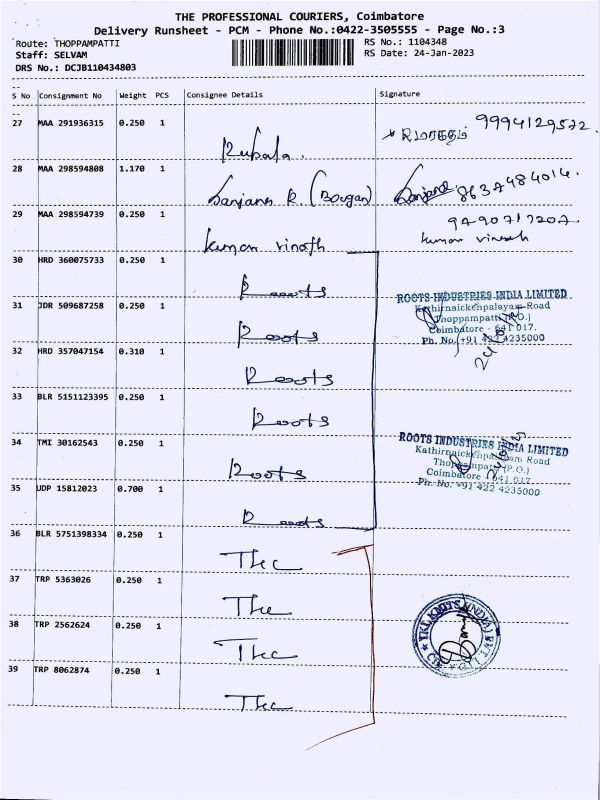 THE PROFESSIONAL COURIERS, Coimbatore
Delivery Runsheet - PCM - Phone No.:0422-3505555 - Page No.:3
Route: THOPPAMPATTI RS No.: 1104348
Staff: SELVAM RS Date: 24-Jan-2023
DRS No.: DCJB110434803
S No Consignment No Weight PCS Consignee Details Signature
27 MAA 291936315 0.250 1
9994129572
28 MAA 298594808 1.170 1
Sanjana R. 8637484014.
29 MAA 298594739 0.250 1
kumar vinoth kumar vinoth
30 HRD 360075733 0.250 1
Roots
ROOTS INDUSTRIES INDIA LIMITED
Kathirnaickenpalayam Road
Thoppampatti (P.O.)
Coimbatore - 641 017.
Ph. No. +91 422 4235000
31 JDR 509687258 0.250 1
Roots
32 HRD 357047154 0.310 1
Roots
33 BLR 5151123395 0.250 1
Roots
34 TMI 30162543 0.250 1
Roots
ROOTS INDUSTRIES INDIA LIMITED
Kathirnaickenpalayam Road
Thoppampatti (P.O.)
Coimbatore - 641 017.
Ph. No. +91 422 4235000
35 UDP 15812023 0.700 1
Roots
36 BLR 5751398334 0.250 1
37 TRP 5363026 0.250 1
38 TRP 2562624 0.250 1
39 TRP 8062874 0.250 1